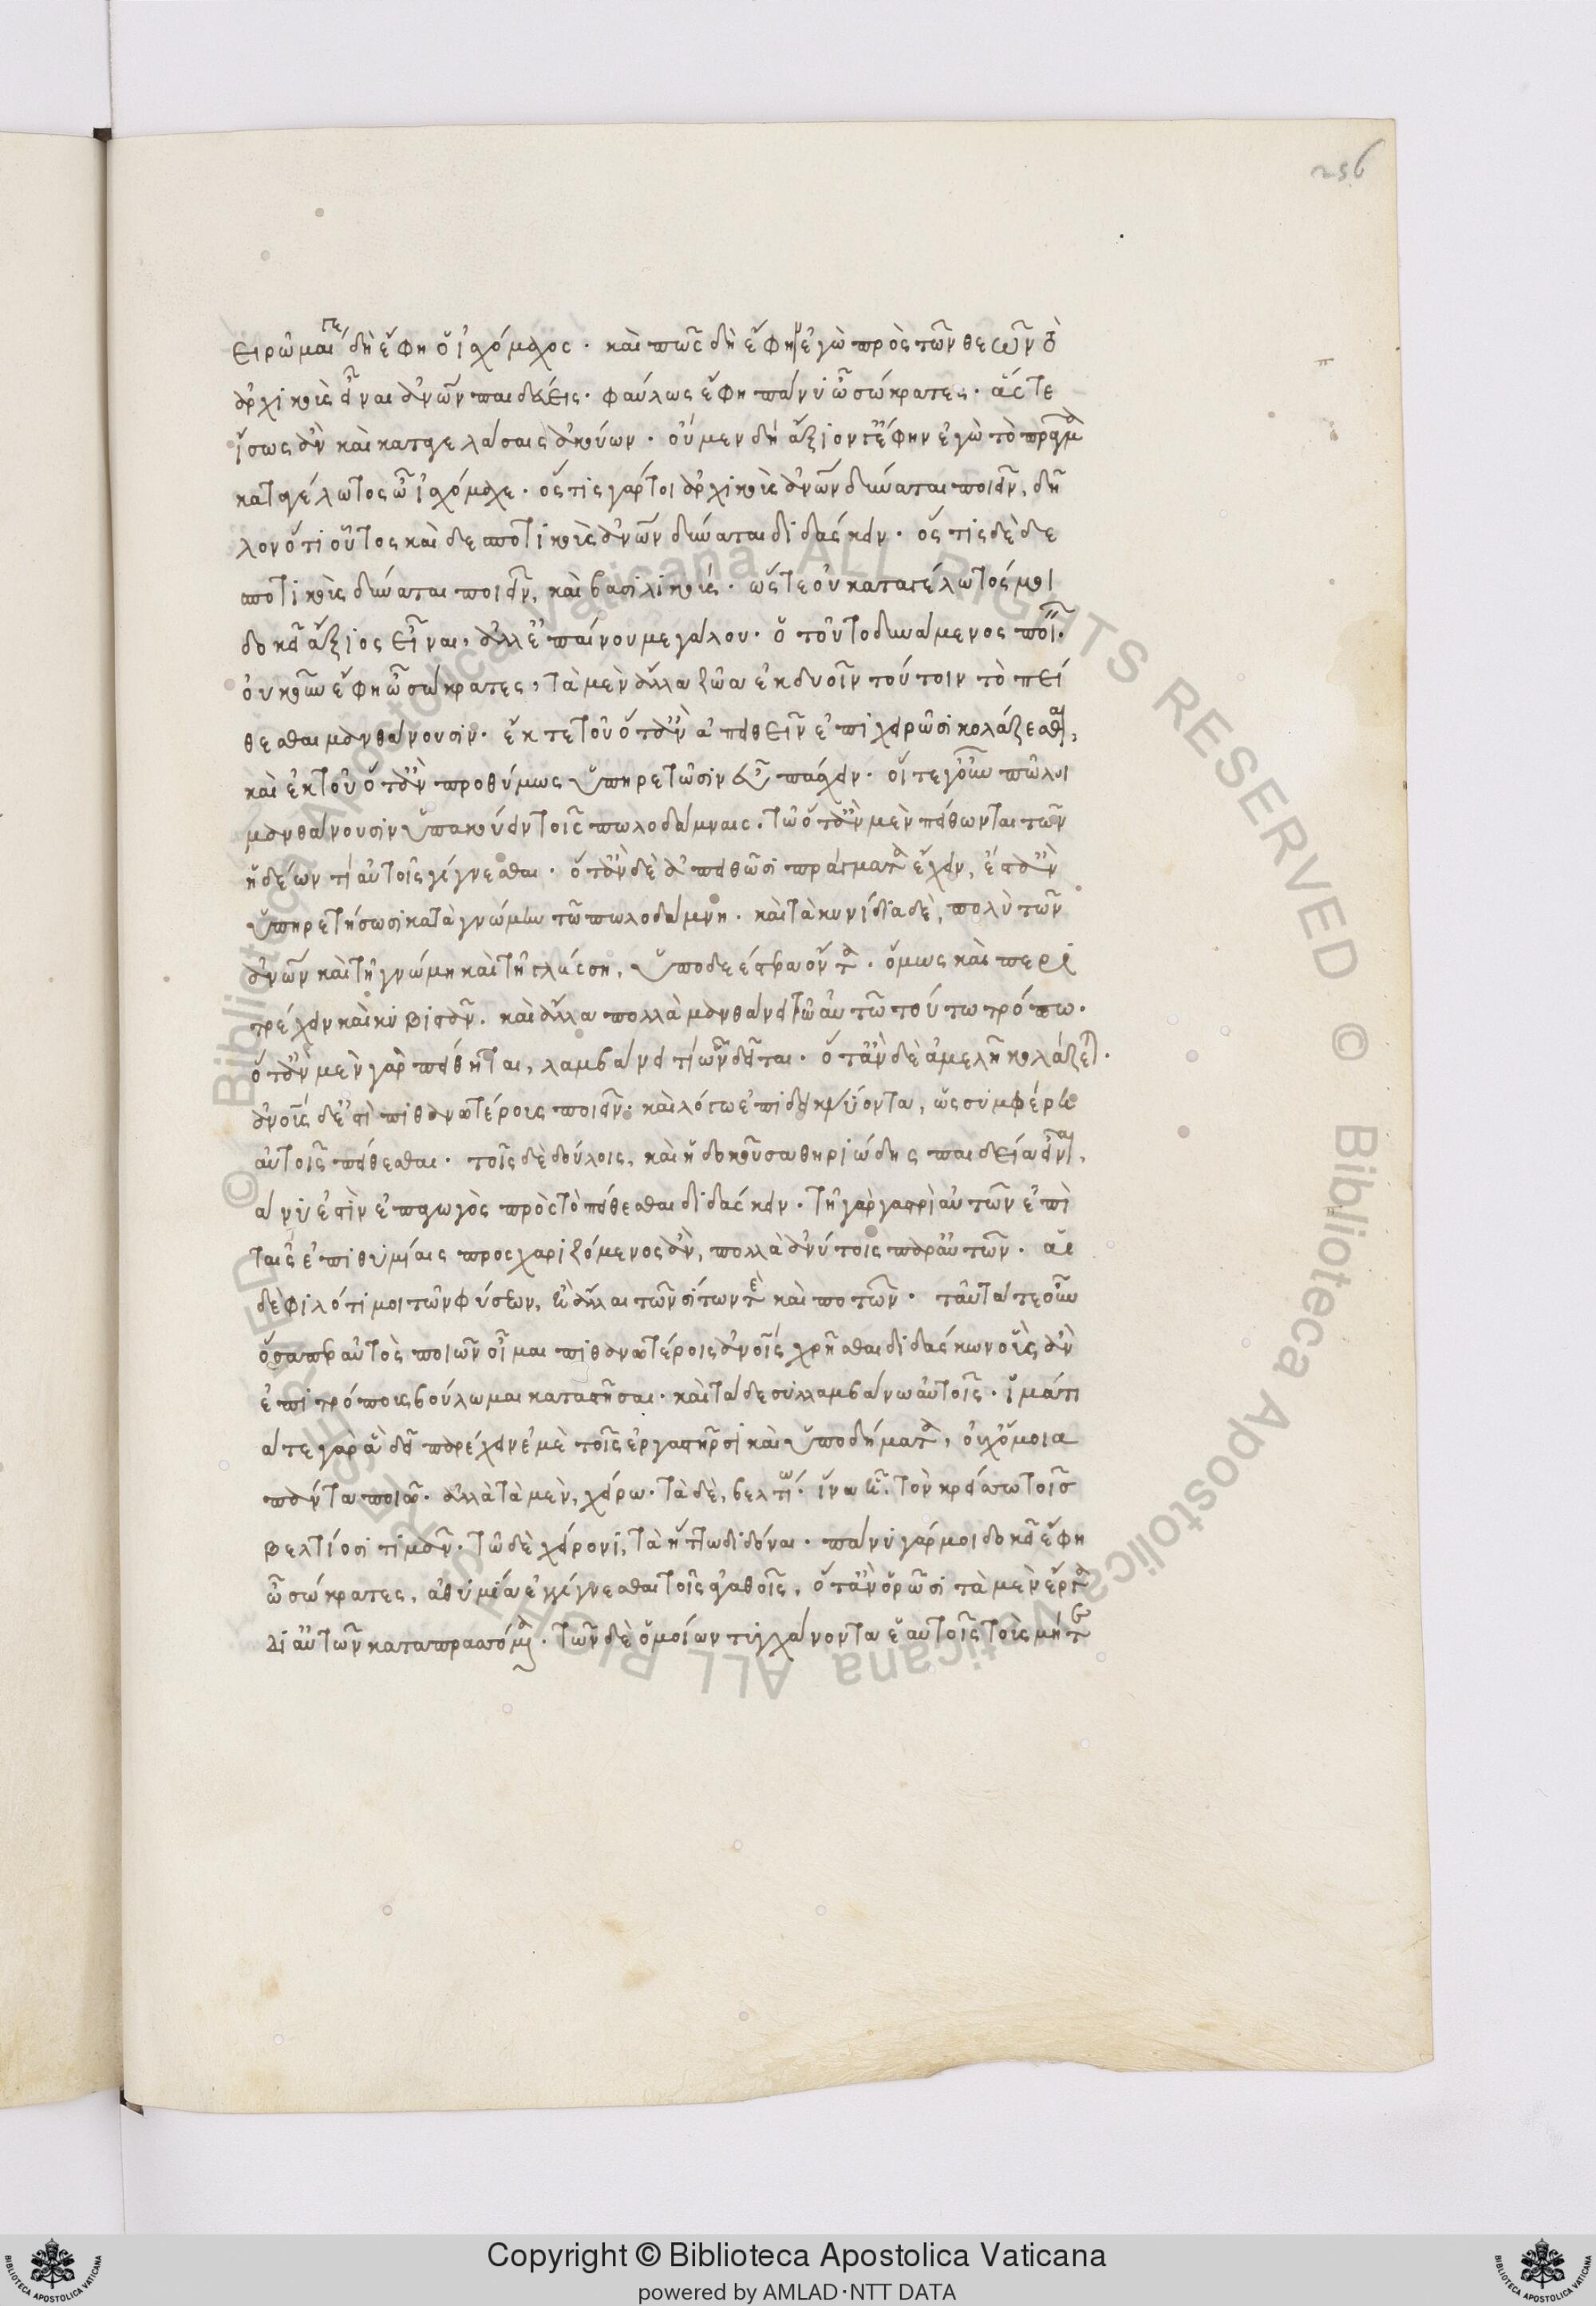 256
ειρῶμαί γε δὴ ἔφη ὁ ἰσχόμαχος. καὶ πῶς δὴ ἔφην ἐγὼ πρὸς τῶν θεῶν τὸ
ἀρχικοὺς εἶναι ἀνῶν παιδεύεις. φαύλως ἔφη πάνυ ὦ σώκρατες. ὥστε
ἴσως ἂν καὶ καταγελάσαις ἀκούων. οὐ μεν δὴ ἄξιόν γ' ἔφην ἐγὼ τὸ πρᾶγμα
καταγέλωτος ὦ ἰσχόμαχε. ὅστις γάρ τοι ἀρχικοὺς ἀνῶν δύναται ποιεῖν, δῆ
λον ὅτι οὗτος καὶ δεσποτικοὺς ἀνῶν δύναται διδάσκειν. ὅστις δὲ δε
σποτικοὺς δύναται ποιεῖν, καὶ βασιλικούς. ὥστε οὐ καταγέλωτός μοι
δοκεῖ ἄξιος εἶναι, ἀλλ' ἐπαίνου μεγάλου. ὁ τοῦτο δυνάμενος ποι.
οὐκοῦν ἔφη ὦ σώκρατες, τὰ μὲν ἄλλα ζῶα ἐκ δυοῖν τούτοιν τὸ πεί
θεσθαι μανθάνουσιν. ἔκ τε τοῦ ὅταν ἀπειθεῖν ἐπιχειρῶσι κολάζεσθαι,
καὶ ἐκ τοῦ ὅταν προθύμως ὑπηρετῶσιν εὖ πάσχειν. οἵ τε γοῦν πῶλοι
μανθάνουσιν ὑπακούειν τοῖς πωλοδάμναις. τῶ ὅταν μὲν πείθωνται τῶν
ἡδέων τι αὐτοῖς γίγνεσθαι. ὅταν δὲ ἀπειθῶσι πράγματα ἔχειν, ἔστ' ἂν
ὑπηρετήσωσι κατὰ γνώμην τῶ πωλοδάμνη. καὶ τὰ κυνίδια δὲ, πολὺ τῶν
ἀνῶν καὶ τῆ γνώμη καὶ τῆ γλώσση, ὑποδεέστερα ὄντα. ὅμως καὶ περι
τρέχειν καὶ κυβιστᾶν. καὶ ἄλλα πολλὰ μανθάνει τῶ αὐτῶ τούτω τρόπω.
ὅταν μὲν γὰρ πείθηται, λαμβάνει τι ὧν δεῖται. ὅταν δὲ ἀμελῆ κολάζεται.
ἀνοῖς δ' ἔστι πιθανωτέροις ποιεῖν. καὶ λόγω ἐπιδεικνύοντα, ὡς συμφέρει
αὐτοῖς πείθεσθαι. τοῖς δὲ δούλοις, καὶ ἡ δοκοῦσα θηριώδης παιδεία εἶναι,
άνυ ἐστὶν ἐπαγωγὸς πρὸς τὸ πείθεσθαι διδάσκειν. τῆ γὰρ γαστρὶ αὐτῶν ἐπὶ
ταῖς ἐπιθυμίαις προσχαριζόμενος ἂν, πολλὰ ἀνύτοις παρ' αὐτῶν. αἱ
δὲ φιλότιμοι τῶν φύσεων, ἢ ἄλλαι τῶν σίτων τε καὶ ποτῶν. ταῦτά τε οὖν
ὅσαπερ αὐτὸς ποιῶν οἶμαι πιθανωτέροις ἀνοῖς χρῆσθαι διδάσκων οὓς ἂν
ἐπιτρόπους βούλωμαι καταστῆσαι. καὶ τάδε συλλαμβάνω αὐτοῖς. ἱμάτι
ά τε γὰρ ἃ δεῖ παρέχειν ἐμὲ τοῖς ἐργαστῆρσι καὶ ὑποδήματα, οὐχ ὅμοια
πάντα ποιῶ. ἀλλὰ τὰ μὲν, χείρω. τὰ δὲ, βελτίω. ἵνα τὸν κρείττω τοῖς
βελτίοσι τιμᾶν. τῶ δὲ χείρονι, τὰ ἥττω διδόναι. πάνυ γάρ μοι δοκεῖ ἔφη
ὦ σώκρατες, ἀθυμία ἐγγίγνεσθαι τοῖς ἀγαθοῖς, ὅταν ὁρῶσι τὰ μὲν ἔργα
δι' αὑτῶν καταπραττόμενα. τῶν δὲ ὁμοίων τυγχάνοντα ἑαυτοῖς τοὺς μήτε
Copyright © Biblioteca Apostolica Vaticana
powered by AMLAD·NTT DATA
© Biblioteca Apostolica Vaticana ALL RIGHTS RESERVED © Biblioteca Apostolica Vaticana ALL RIGHTS RESERVED
BIBLIOTECA APOSTOLICA VATICANA
BIBLIOTECA APOSTOLICA VATICANA